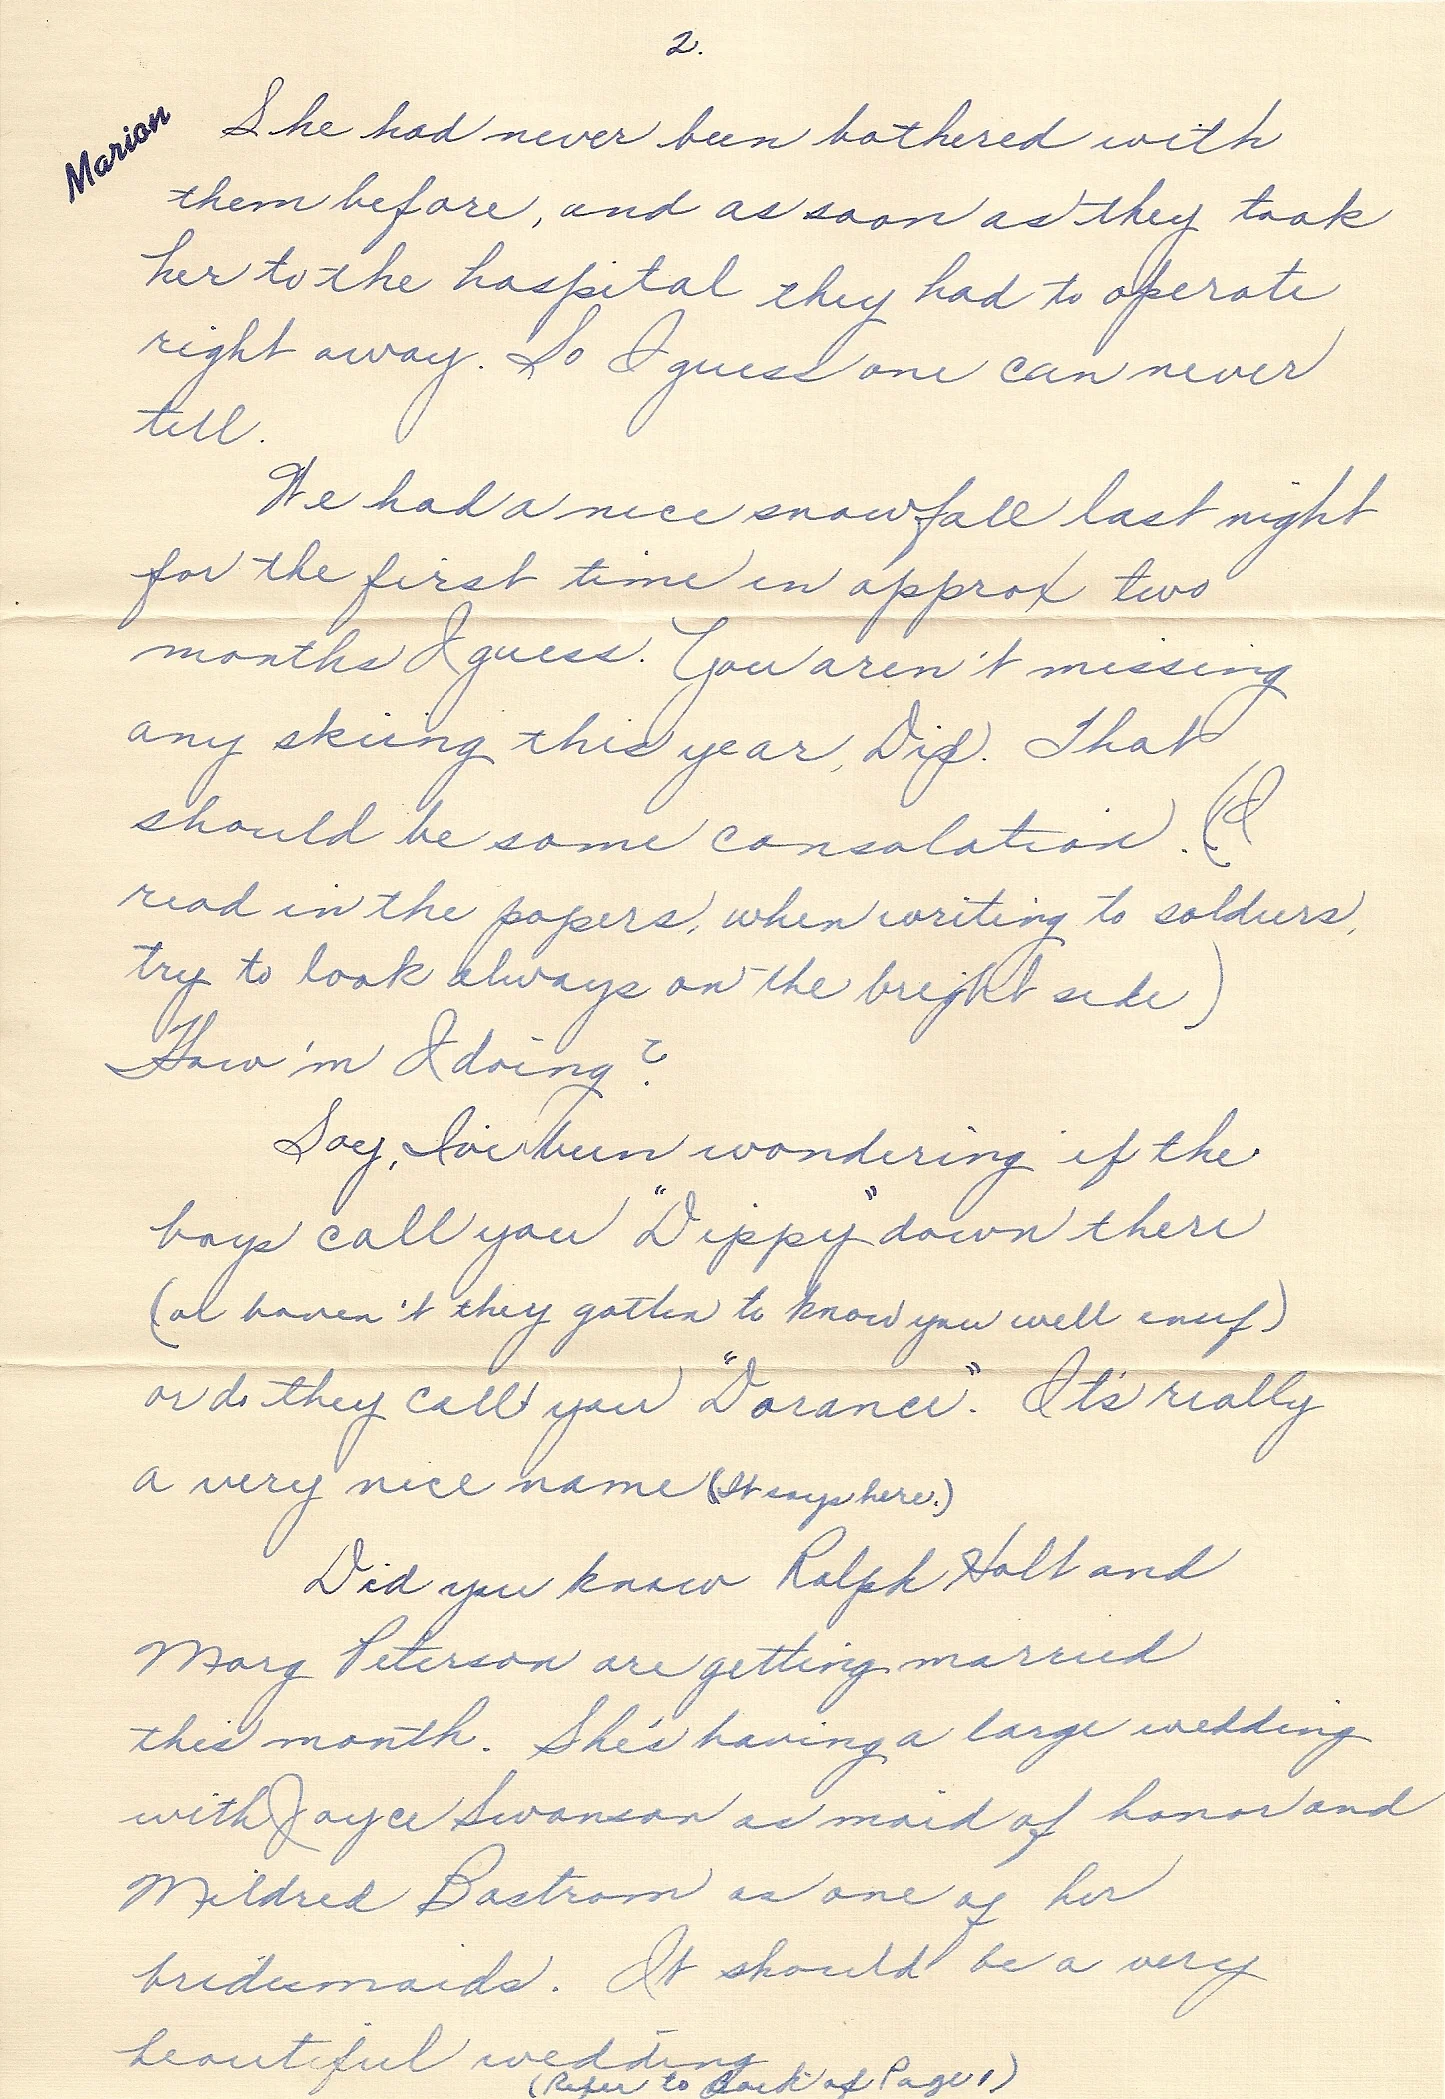 2.
Marion
She had never been bothered with
them before, and as soon as they took
her to the hospital they had to operate
right away. So I guess one can never
tell.
We had a nice snowfall last night
for the first time in approx two
months I guess. You aren't missing
any skiing this year, Dip. That
should be some consolation. (I
read in the papers, when writing to soldiers,
try to look always on the bright side)
How'm I doing?
Say, I've been wondering if the
boys call you "Dippy" down there
(or haven't they gotten to know you well enuf)
or do they call you "Dorance". It's really
a very nice name (It says here.)
Did you know Ralph Holt and
Marg Peterson are getting married
this month. She's having a large wedding
with Joyce Swanson as maid of honor and
Mildred Bostrom as one of her
bridesmaids. It should be a very
beautiful wedding
(Refer to back of Page 1)